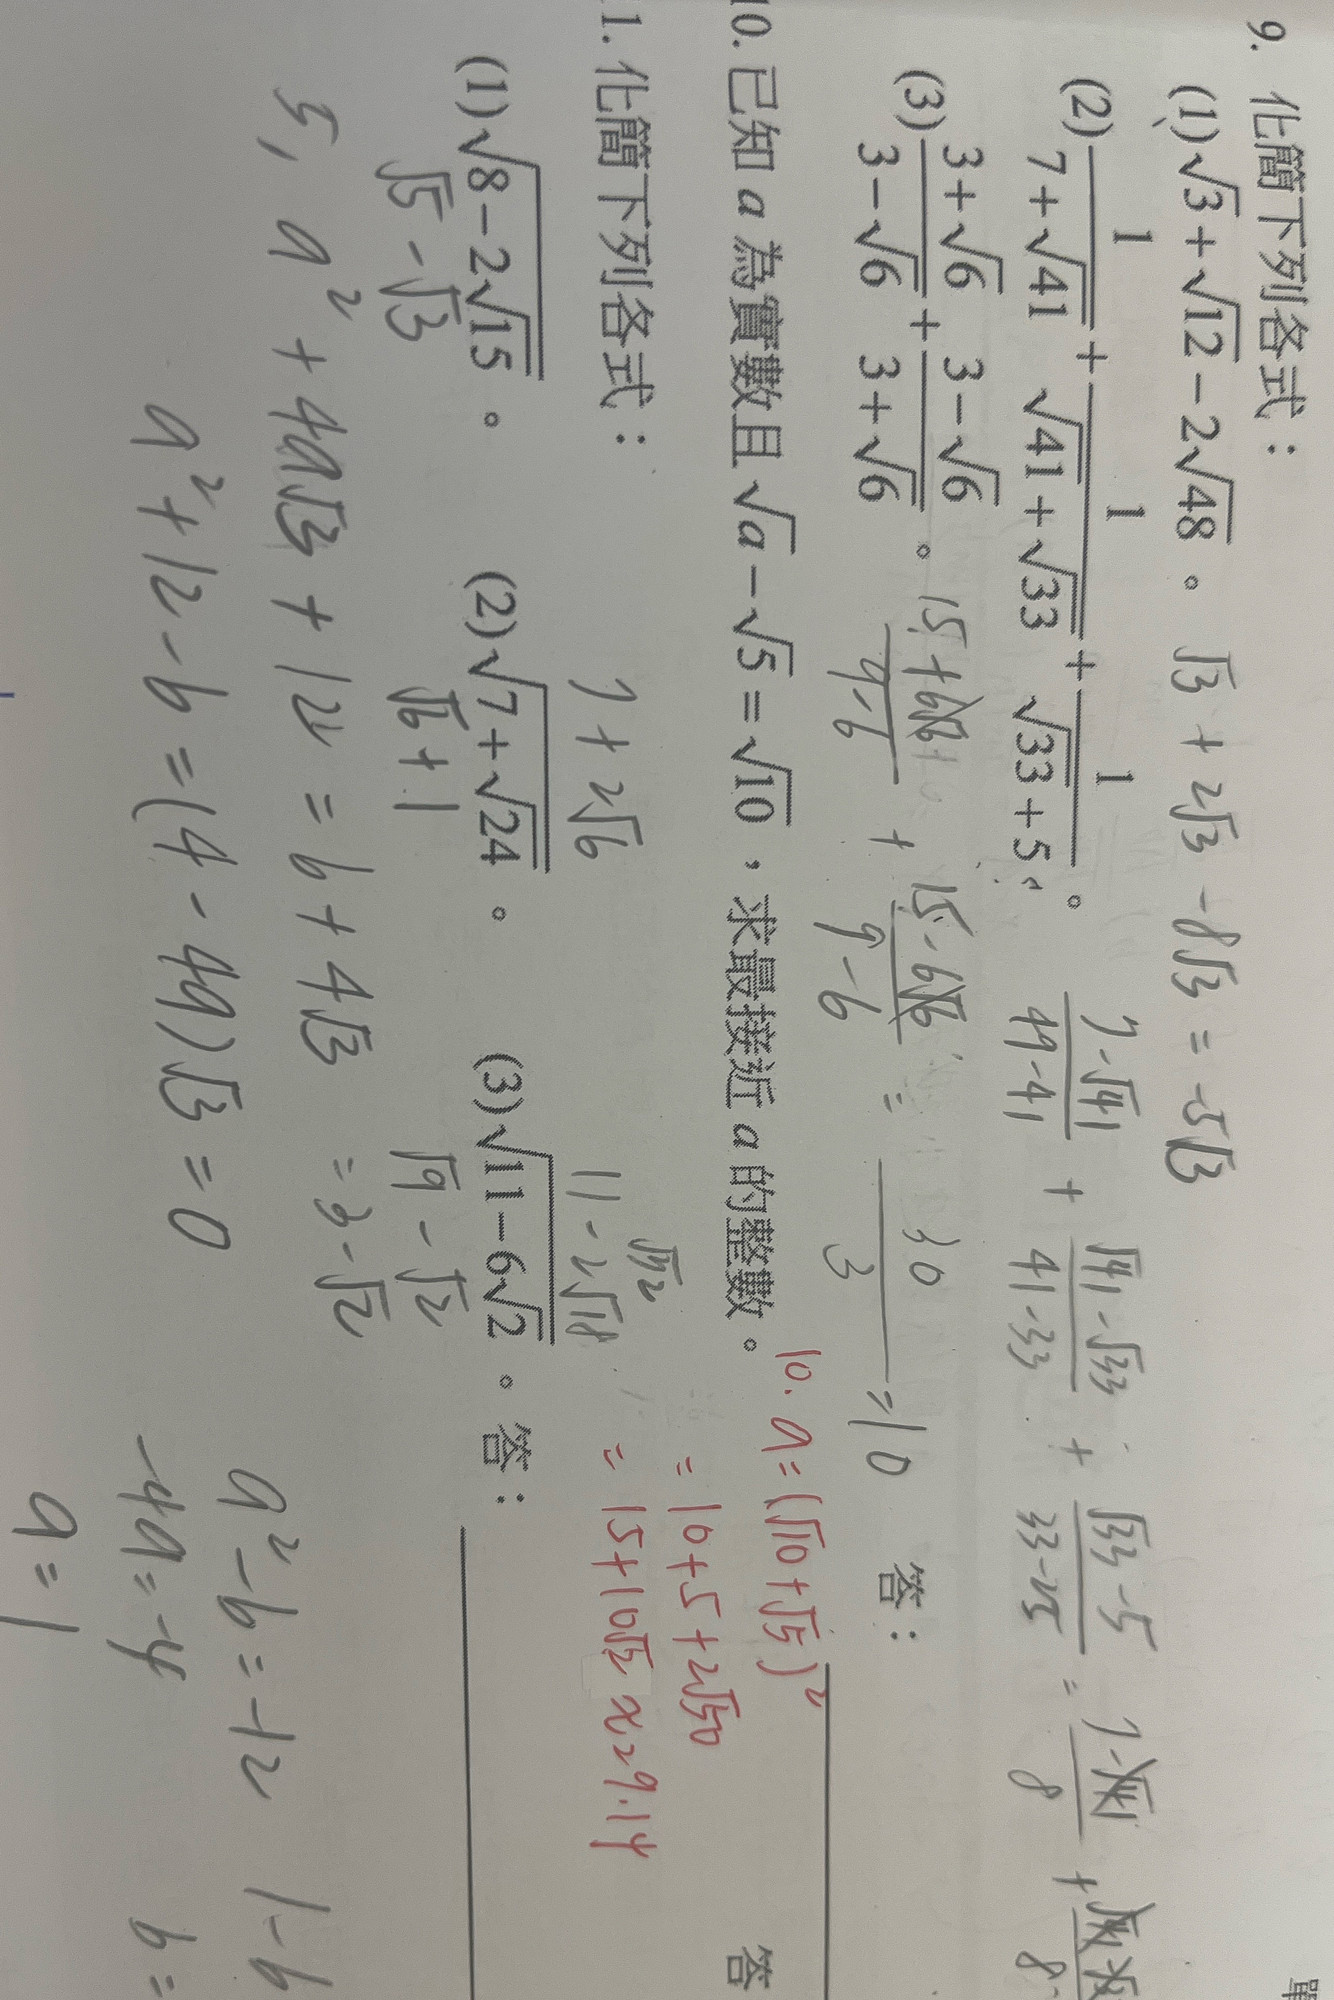 9. 化簡下列各式：
(1) √3 + √12 − 2√48 。 √3 + 2√3 − 8√3 = −5√3
(2) 1/(7+√41) + 1/(√41+√33) + 1/(√33+5) 。 (7−√41)/(49−41) + (√41−√33)/(41−33) + (√33−5)/(33−25) = (7−√41)/8 +
(3) (3+√6)/(3−√6) + (3−√6)/(3+√6) 。 (15+6√6)/(9−6) + (15−6√6)/(9−6) = 30/3 = 10 答：
10. 已知 a 為實數且 √a − √5 = √10 ，求最接近 a 的整數。 答
10. a = (√10+√5)²
= 10+5+2√50
= 15+10√2 ≈ 29.14
1. 化簡下列各式：
7+2√6
√9√2
11−2√18
(1) √(8−2√15) 。 (2) √(7+√24) 。 (3) √(11−6√2) 。答：
√5 − √3
√6 + 1
√9 − √2
= 3 − √2
5, a² + 4a√3 + 12 = b + 4√3
a² + 12 − b = (4 − 4a)√3 = 0
a² − b = −12
1 − b
−4a = −4
b =
a = 1